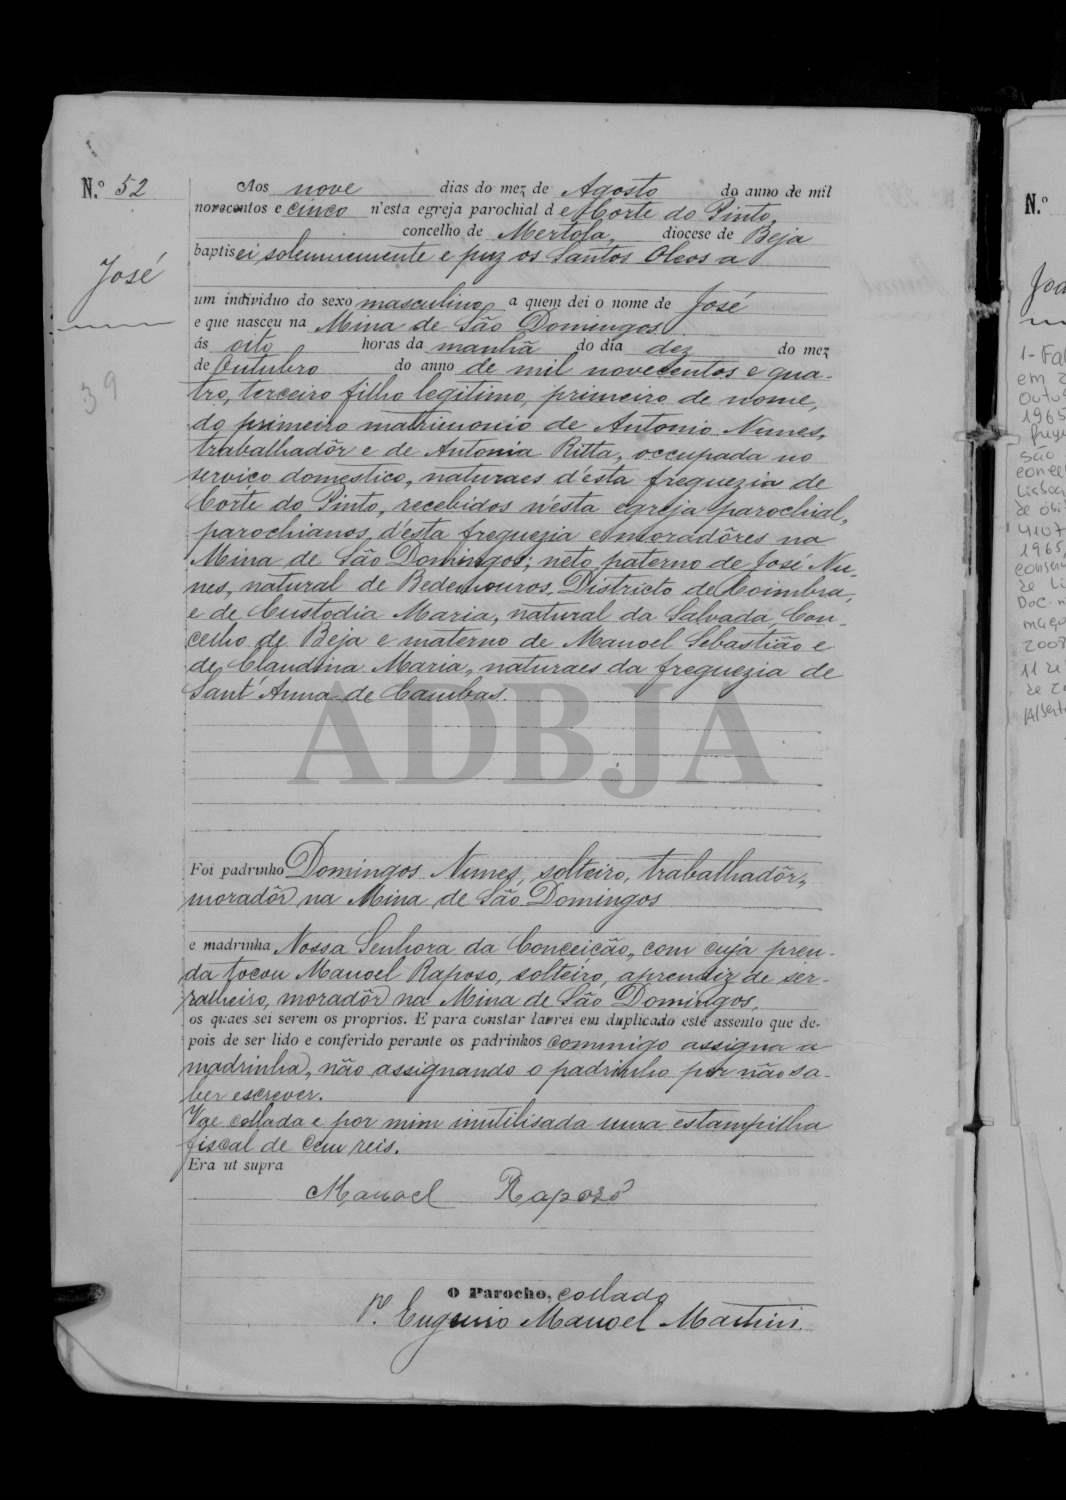 N.º 52
José
39
Aos nove dias do mez de Agosto do anno de mil
novecentos e cinco n'esta egreja parochial de Côrte do Pinto,
concelho de Mertola, diocese de Beja
baptisei solemnemente e puz os Santos Oleos a
um individuo do sexo masculino a quem dei o nome de José
e que nasceu na Mina de São Domingos
ás oito horas da manhã do dia dez do mez
de Outubro do anno de mil novecentos e qua-
tro, terceiro filho legitimo, primeiro de nome,
do primeiro matrimonio de Antonio Nunes,
trabalhadôr e de Antonia Ritta, occupada no
serviço domestico, naturaes d'esta freguezia de
Côrte do Pinto, recebidos n'esta egreja parochial,
parochianos d'esta freguezia e moradôres na
Mina de São Domingos; neto paterno de José Nu-
nes, natural de Districto de Coimbra,
e de Custodia Maria, natural da Salvada, Con-
celho de Beja e materno de Manoel Sebastião e
de Claudina Maria, naturaes da freguezia de
Sant'Anna de Cambas.
ADBJA
Foi padrinho Domingos Nunes, solteiro, trabalhadôr,
moradôr na Mina de São Domingos
e madrinha Nossa Senhora da Conceição, com cuja pren-
da tocou Manoel Raposo, solteiro, aprendiz de ser-
ralheiro, moradôr na Mina de São Domingos,
os quaes sei serem os proprios. E para constar lavrei em duplicado este assento que de-
pois de ser lido e conferido perante os padrinhos commigo assigna a
madrinha, não assignando o padrinho por não sa-
ber escrever.
Vae collada e por mim inutilisada uma estampilha
fiscal de cem reis.
Era ut supra
Manoel Raposo
O Parocho, collado
P.e Eugenio Manoel Martins.
N.º
1-
em 2
1965
São
de
4107
1965,
de Li
2008
11 de